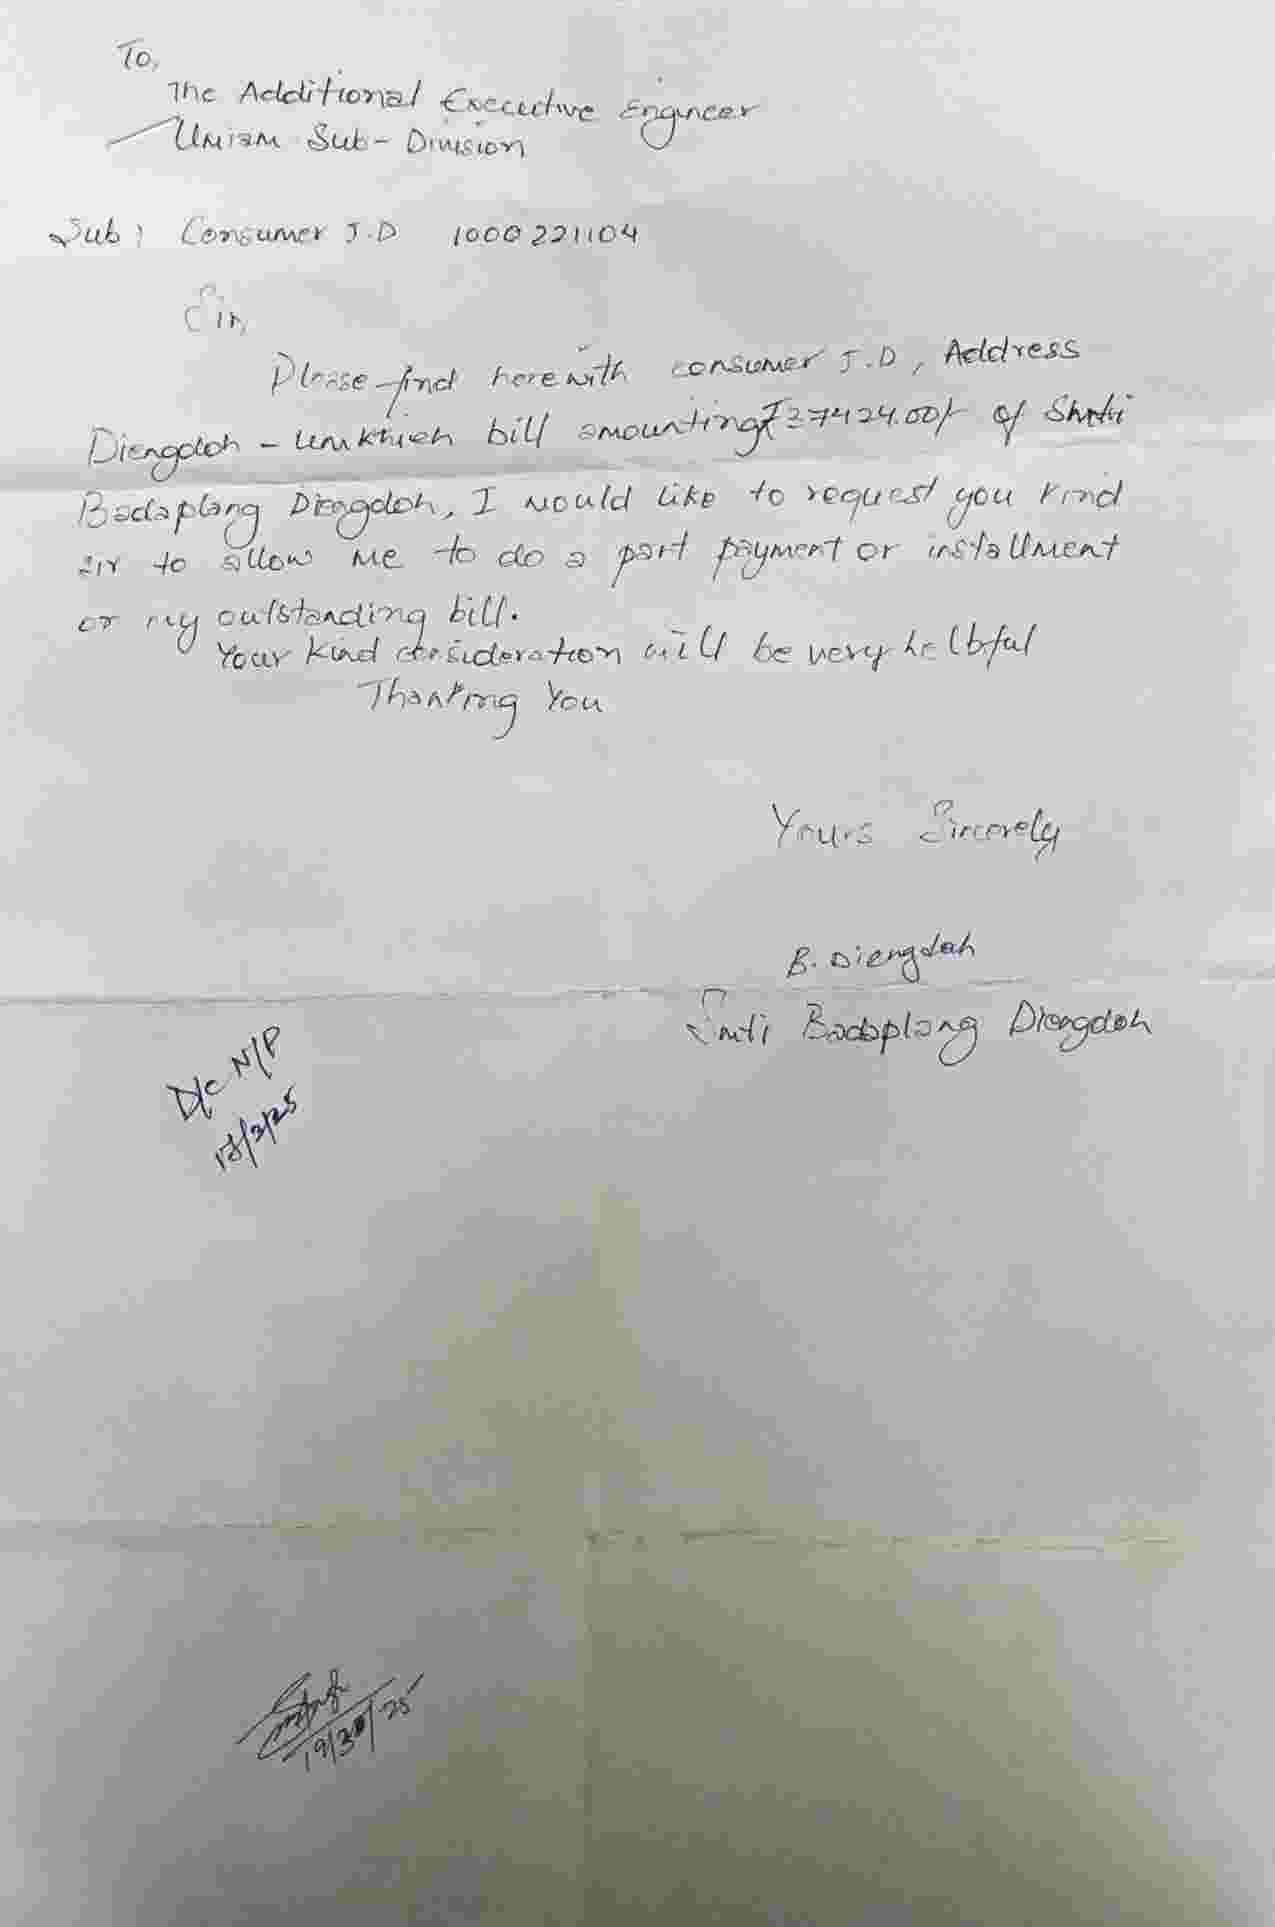 To,
The Additional Executive Engineer
Umiam Sub-Division
Sub: Consumer I.D 1000221104
Sir,
Please find here with consumer I.D, Address
Diengdoh - Umkhieh bill amounting ₹37424.00/- of Smti
Badaplang Diengdoh, I would like to request you kind
sir to allow me to do a part payment or installment
or my outstanding bill.
Your kind consideration will be very helbful
Thanking You
Yours Sincerely
B. Diengdoh
Smti Badaplang Diengdoh
D/c N/P
/3/25
19/3/25